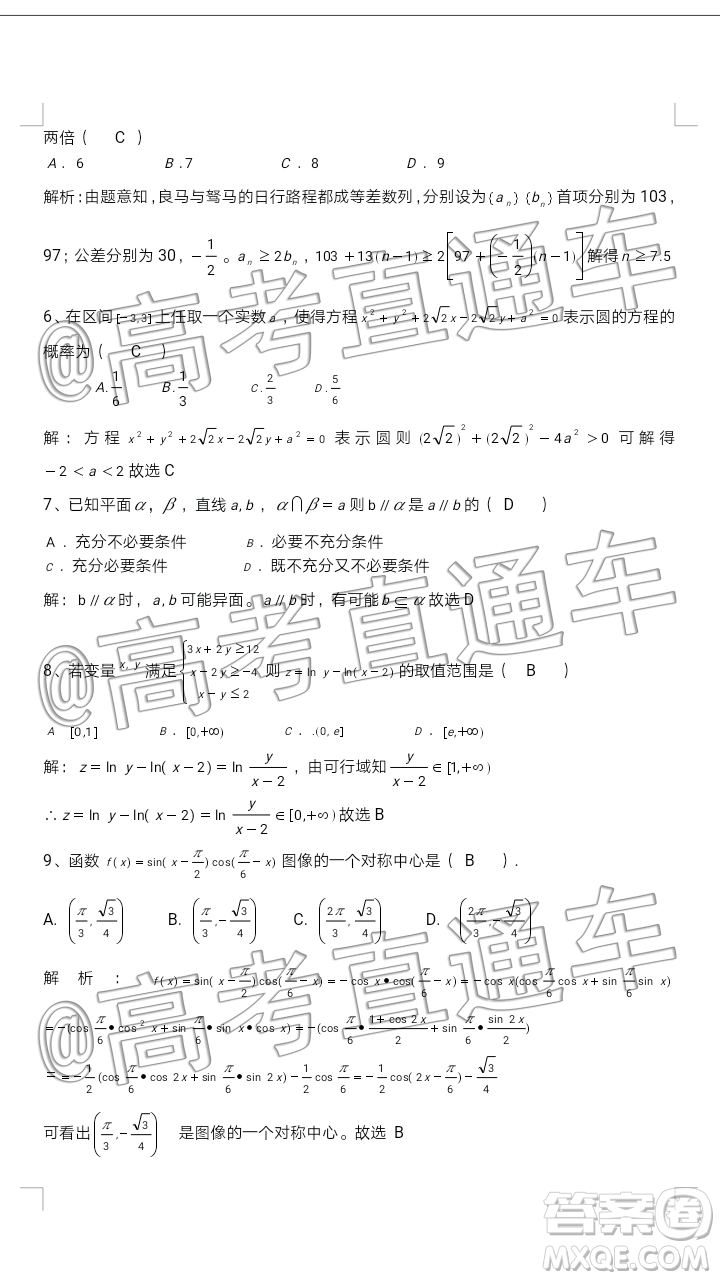 两倍（ C ）
A．6 B.7 C．8 D．9
解析:由题意知,良马与驽马的日行路程都成等差数列,分别设为{a_n} {b_n}首项分别为103,
97;公差分别为30,－1/2。a_n≥2b_n, 103＋13(n－1)≥2[97＋(－1/2)(n－1)]解得n≥7.5
6、在区间[-3,3]上任取一个实数a，使得方程x²＋y²＋2√2x－2√2y＋a²＝0表示圆的方程的
概率为（ C ）
A.1/6 B.1/3 C.2/3 D.5/6
解：方程x²＋y²＋2√2x－2√2y＋a²＝0表示圆则(2√2)²＋(2√2)²－4a²＞0可解得
－2＜a＜2故选C
7、已知平面α，β，直线a,b，α∩β＝a则b∥α是a∥b的（ D ）
A．充分不必要条件 B．必要不充分条件
C．充分必要条件 D．既不充分又不必要条件
解：b∥α时，a,b可能异面。a∥b时，有可能b⊆α故选D
8、若变量x,y满足{3x＋2y≥12 x－2y≥－4 x－y≤2 则z＝ln y－ln(x－2)的取值范围是（ B ）
A [0,1] B．[0,+∞) C．.(0,e] D．[e,+∞)
解：z＝ln y－ln(x－2)＝ln y/(x－2)，由可行域知y/(x－2)∈[1,+∞)
∴z＝ln y－ln(x－2)＝ln y/(x－2)∈[0,+∞)故选B
9、函数f(x)＝sin(x－π/2)cos(π/6－x)图像的一个对称中心是（ B ）.
A. (π/3,√3/4) B. (π/3,－√3/4) C. (2π/3,√3/4) D. (2π/3,－√3/4)
解析：f(x)＝sin(x－π/2)cos(π/6－x)＝－cos x•cos(π/6－x)＝－cos x(cos π/6 cos x＋sin π/6 sin x)
＝－(cos π/6•cos² x＋sin π/6•sin x•cos x)＝－(cos π/6•(1＋cos 2x)/2＋sin π/6•sin 2x/2)
＝＝－1/2(cos π/6•cos 2x＋sin π/6•sin 2x)－1/2 cos π/6＝－1/2 cos(2x－π/6)－√3/4
可看出(π/3,－√3/4) 是图像的一个对称中心。故选 B
@高考直通车
@高考直通车
@高考直通车
答案圈
MXQE.COM